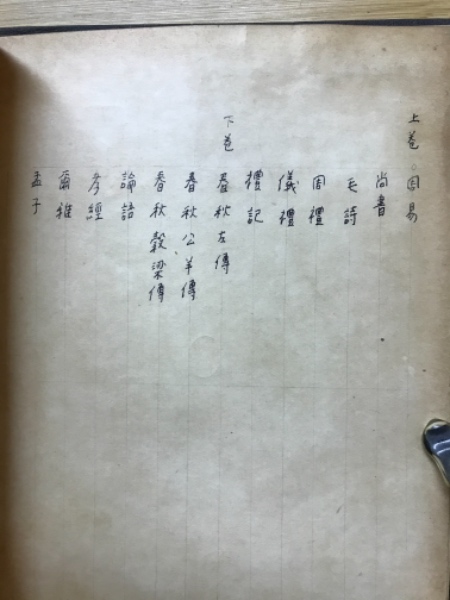 上卷 周易
尚書
毛詩
周禮
儀禮
禮記
下卷 春秋左傳
春秋公羊傳
春秋穀梁傳
論語
孝經
爾雅
孟子